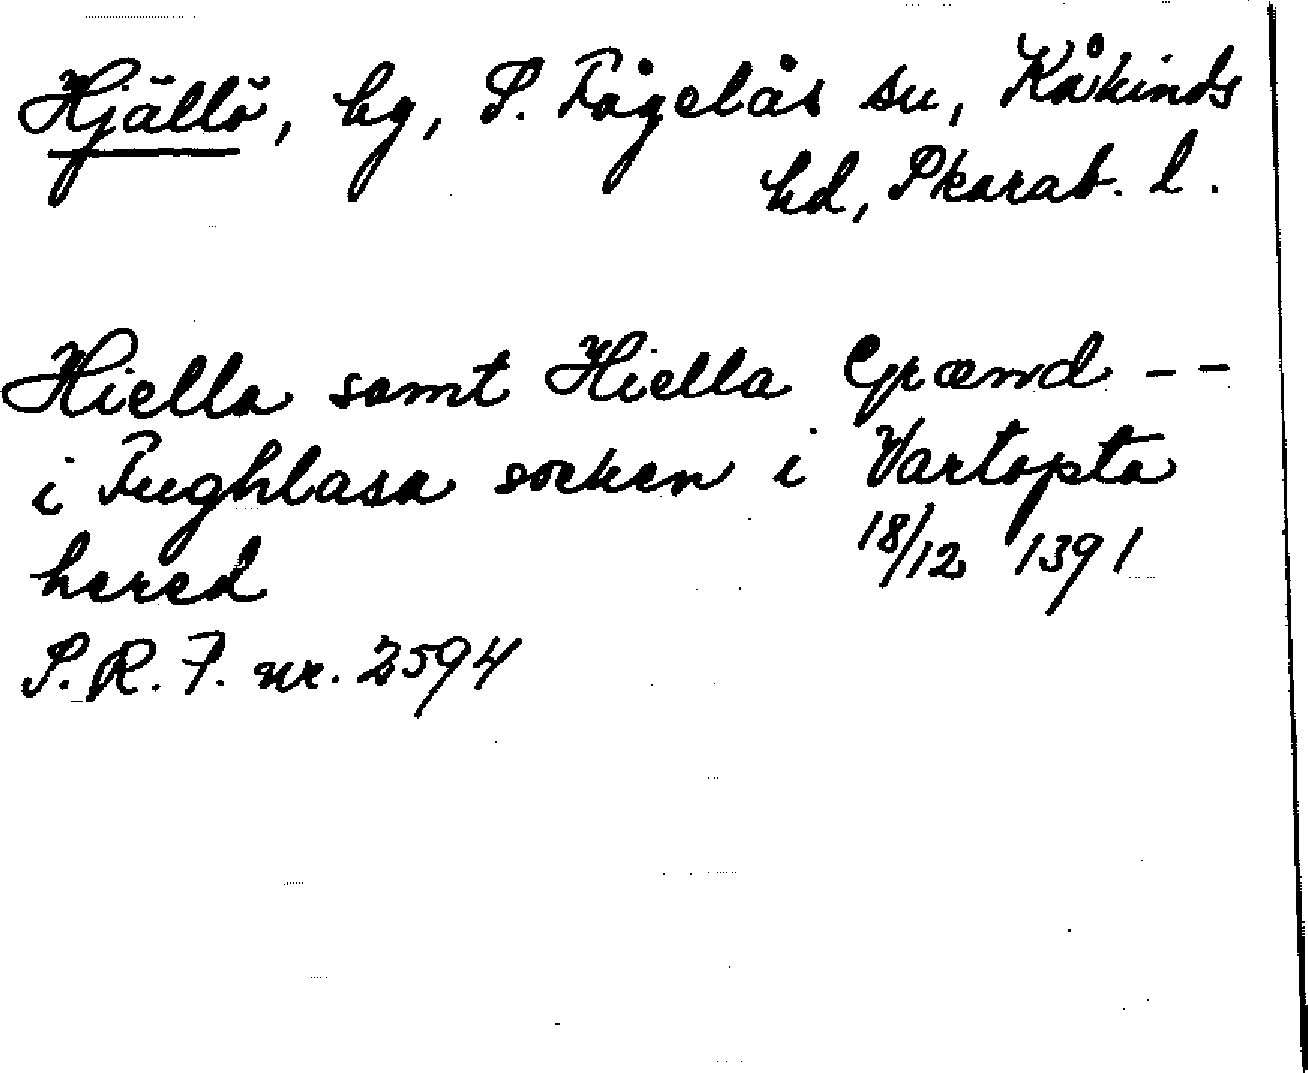 Hjällö, by, S. Fågelås sn, Kåkinds
hd, Skarab. l.
Hiella samt Hiella Grænd --
i Fughlasa socken i Vartopta
hered 18/12 1391
S.R.P. nr. 2594